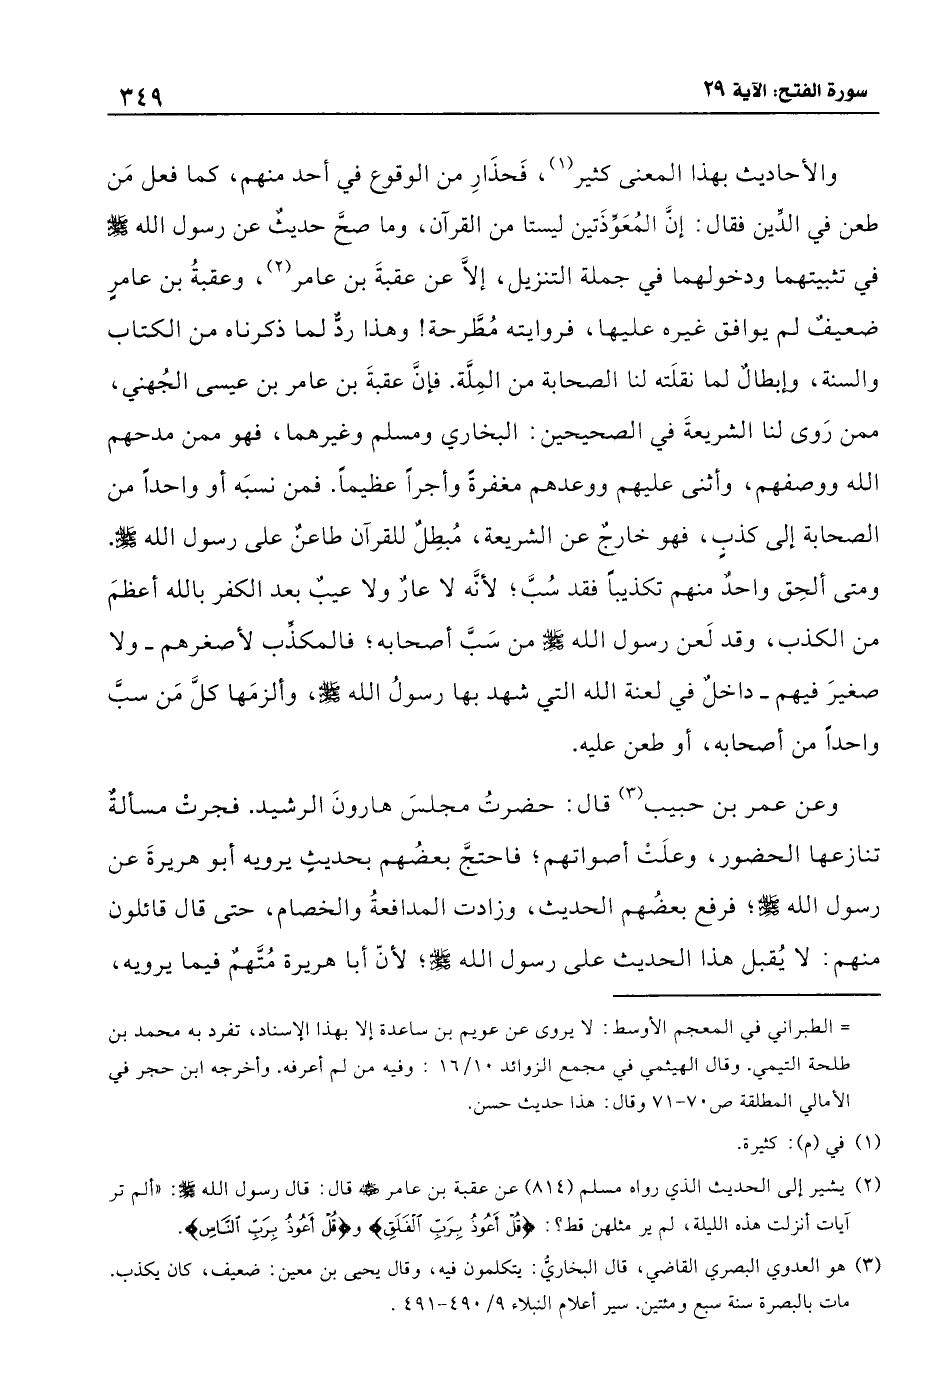 سورة الفتح: الآية ٢٩
٣٤٩
والأحاديث بهذا المعنى كثير(١)، فَحذَارِ من الوقوع في أحد منهم، كما فعل مَن
طعن في الدِّين فقال: إنَّ المُعَوِّذَتين ليستا من القرآن، وما صحَّ حديثٌ عن رسول الله ﷺ
في تثبيتهما ودخولهما في جملة التنزيل، إلاَّ عن عقبةَ بن عامر(٢)، وعقبةُ بن عامرٍ
ضعيفٌ لم يوافق غيره عليها، فروايته مُطَّرحة! وهذا ردٌّ لما ذكرناه من الكتاب
والسنة، وإبطالٌ لما نقلَته لنا الصحابة من المِلَّة. فإنَّ عقبةَ بن عامر بن عيسى الجُهني،
ممن رَوى لنا الشريعةَ في الصحيحين: البخاري ومسلم وغيرهما، فهو ممن مدحهم
الله ووصفهم، وأثنى عليهم ووعدهم مغفرةً وأجراً عظيماً. فمن نسبَه أو واحداً من
الصحابة إلى كذبٍ، فهو خارجٌ عن الشريعة، مُبطِلٌ للقرآن طاعنٌ على رسول الله ﷺ.
ومتى ألحِق واحدٌ منهم تكذيباً فقد سُبَّ؛ لأنَّه لا عارٌ ولا عيبٌ بعد الكفر بالله أعظمَ
من الكذب، وقد لَعن رسول الله ﷺ من سَبَّ أصحابه؛ فالمكذِّب لأصغرهم ـ ولا
صغيرَ فيهم ـ داخلٌ في لعنة الله التي شهد بها رسولُ الله ﷺ، وألزمَها كلَّ مَن سبَّ
واحداً من أصحابه، أو طعن عليه.
وعن عمر بن حبيب(٣) قال: حضرتُ مجلسَ هارونَ الرشيد. فجرتْ مسألةٌ
تنازعها الحضور، وعلَتْ أصواتهم؛ فاحتجَّ بعضُهم بحديثٍ يرويه أبو هريرةَ عن
رسول الله ﷺ؛ فرفع بعضُهم الحديث، وزادت المدافعةُ والخصام، حتى قال قائلون
منهم: لا يُقبل هذا الحديث على رسول الله ﷺ؛ لأنّ أبا هريرة مُتَّهمٌ فيما يرويه،
= الطبراني في المعجم الأوسط: لا يروى عن عويم بن ساعدة إلا بهذا الإسناد، تفرد به محمد بن
طلحة التيمي. وقال الهيثمي في مجمع الزوائد ١٦/١٠ : وفيه من لم أعرفه. وأخرجه ابن حجر في
الأمالي المطلقة ص٧٠-٧١ وقال: هذا حديث حسن.
(١) في (م): كثيرة.
(٢) يشير إلى الحديث الذي رواه مسلم (٨١٤) عن عقبة بن عامر ﷺ قال: قال رسول الله ﷺ: «ألم تر
آيات أنزلت هذه الليلة، لم ير مثلهن قط؟: ﴿قُلْ أَعُوذُ بِرَبِّ ٱلْفَلَقِ﴾ و﴿قُلْ أَعُوذُ بِرَبِّ ٱلنَّاسِ﴾.
(٣) هو العدوي البصري القاضي، قال البخاريُّ: يتكلمون فيه، وقال يحيى بن معين: ضعيف، كان يكذب.
مات بالبصرة سنة سبع ومئتين. سير أعلام النبلاء ٩/ ٤٩٠-٤٩١ .